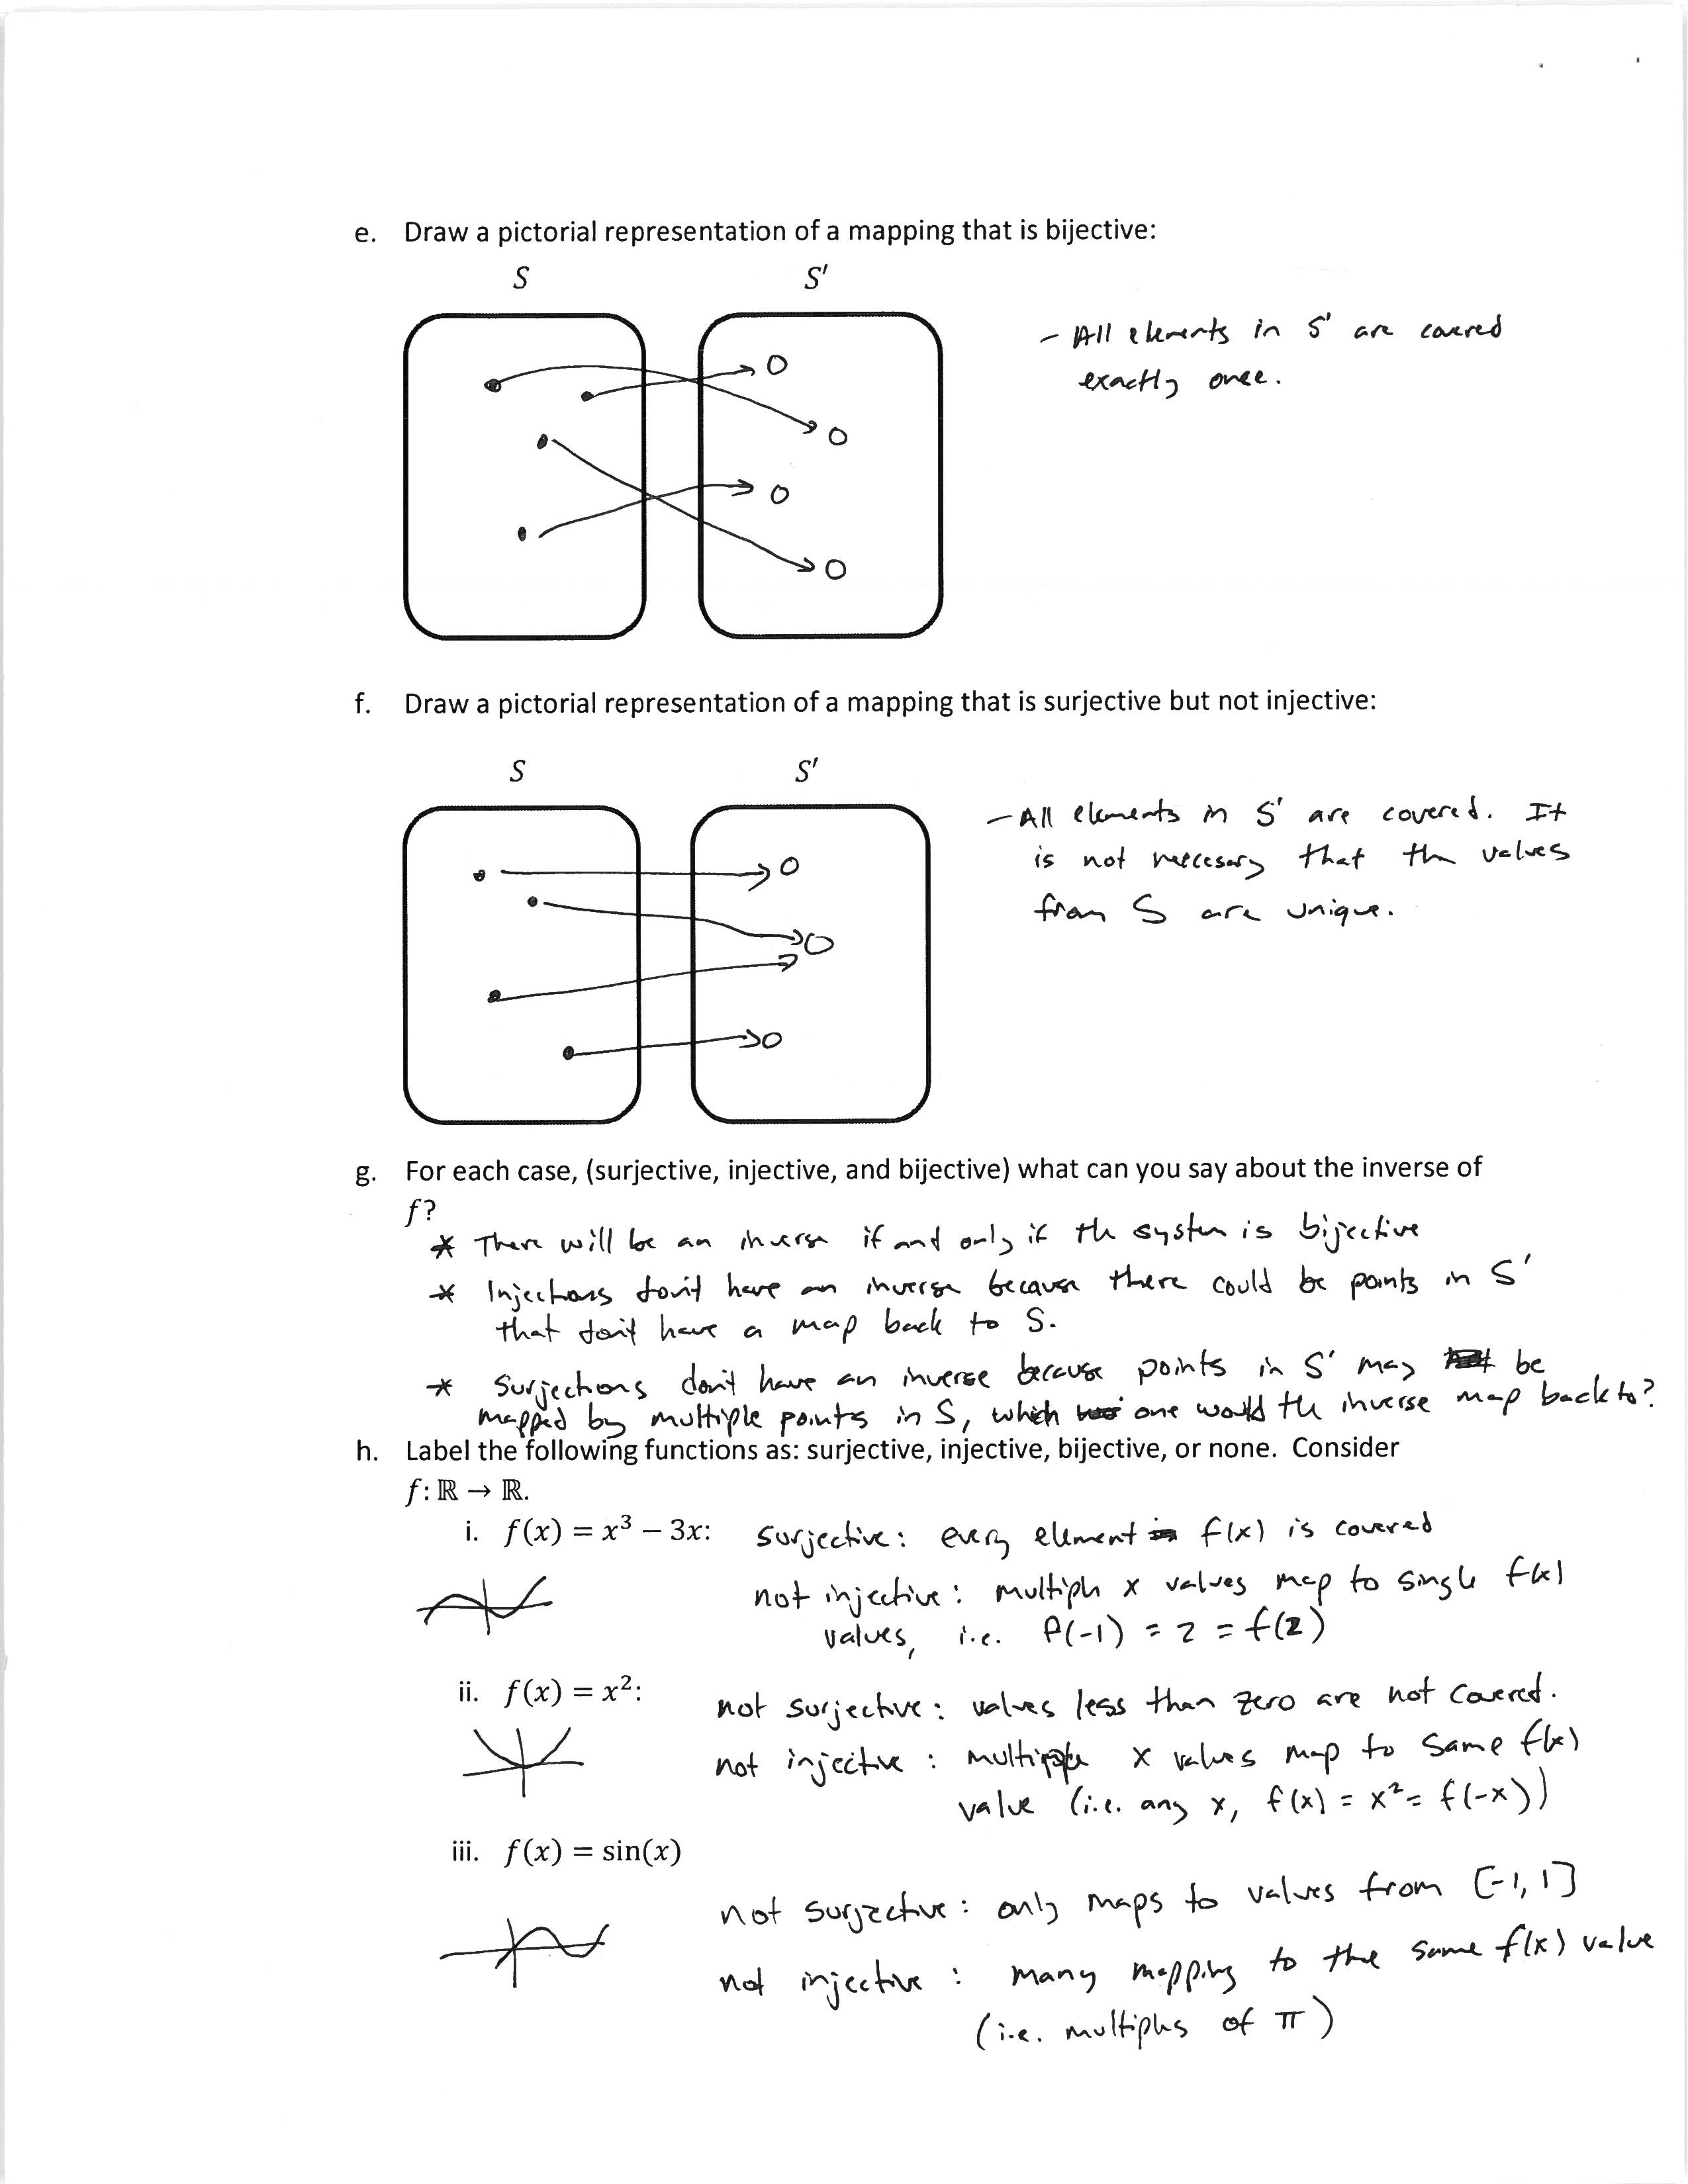 e. Draw a pictorial representation of a mapping that is bijective:
S S′
- All elements in S' are covered
exactly once.
f. Draw a pictorial representation of a mapping that is surjective but not injective:
S S′
- All elements in S' are covered. It
is not neccesary that the values
from S are unique.
g. For each case, (surjective, injective, and bijective) what can you say about the inverse of
f?
* There will be an inverse if and only if the system is bijective
* Injections don't have an inverse because there could be points in S'
that don't have a map back to S.
* Surjections don't have an inverse because points in S' may be
mapped by multiple points in S, which one would the inverse map back to?
h. Label the following functions as: surjective, injective, bijective, or none. Consider
f: ℝ → ℝ.
i. f(x) = x³ − 3x: surjective: every element f(x) is covered
not injective: multiple x values map to single f(x)
values, i.e. f(-1) = 2 = f(2)
ii. f(x) = x²: not surjective: values less than zero are not covered.
not injective: multiple x values map to same f(x)
value (i.e. any x, f(x) = x² = f(-x))
iii. f(x) = sin(x)
not surjective: only maps to values from [-1, 1]
not injective: many mapping to the same f(x) value
(i.e. multiples of π)